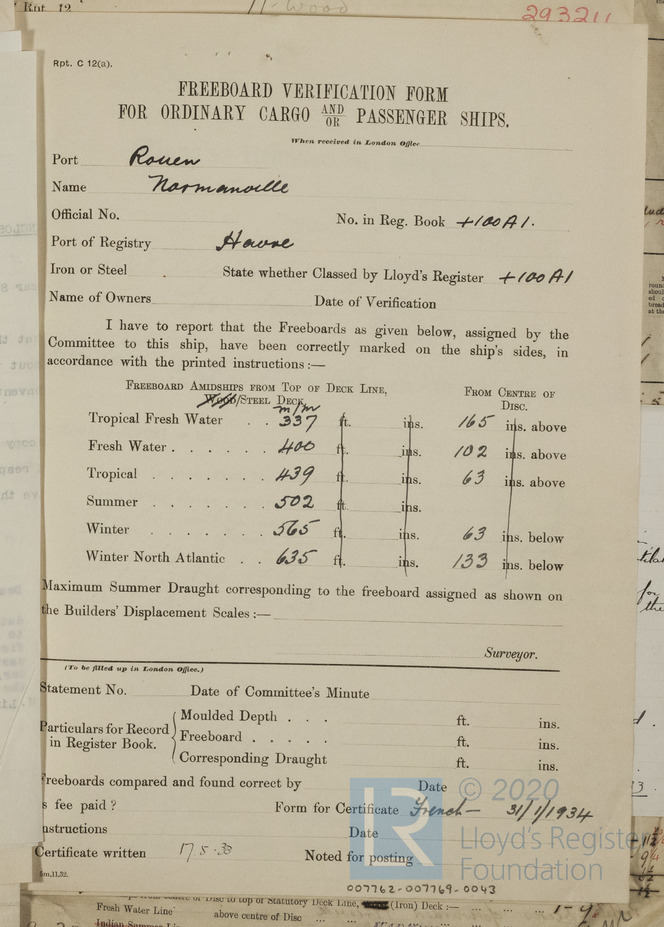 Rpt. 12
293211
Rpt. C 12(a).
FREEBOARD VERIFICATION FORM
FOR ORDINARY CARGO AND/OR PASSENGER SHIPS.
When received in London Office
Port Rouen
Name Normanville
Official No. No. in Reg. Book +100A1.
Port of Registry Havre
Iron or Steel State whether Classed by Lloyd's Register +100A1
Name of Owners Date of Verification
I have to report that the Freeboards as given below, assigned by the
Committee to this ship, have been correctly marked on the ship's sides, in
accordance with the printed instructions :—
FREEBOARD AMIDSHIPS FROM TOP OF DECK LINE, FROM CENTRE OF
WOOD/STEEL DECK. DISC.
m/m
Tropical Fresh Water . . 337 ft. ins. 165 ins. above
Fresh Water . . . . . . 400 ft. ins. 102 ins. above
Tropical . . . . . . . 439 ft. ins. 63 ins. above
Summer . . . . . . . 502 ft. ins.
Winter . . . . . . . 565 ft. ins. 63 ins. below
Winter North Atlantic . . 635 ft. ins. 133 ins. below
Maximum Summer Draught corresponding to the freeboard assigned as shown on
the Builders' Displacement Scales :—
Surveyor.
(To be filled up in London Office.)
Statement No. Date of Committee's Minute
Particulars for Record in Register Book.
Moulded Depth . . . ft. ins.
Freeboard . . . . . ft. ins.
Corresponding Draught ft. ins.
Freeboards compared and found correct by Date
s fee paid ? Form for Certificate French — 31/1/1934
nstructions Date
Certificate written 17.5.33 Noted for posting
5m.11,32.
© 2020
Lloyd's Register
Foundation
LR
007762-007769-0043
from centre of Disc to top of Statutory Deck Line, (Iron) Deck :—
Fresh Water Line above centre of Disc
Indian Summer